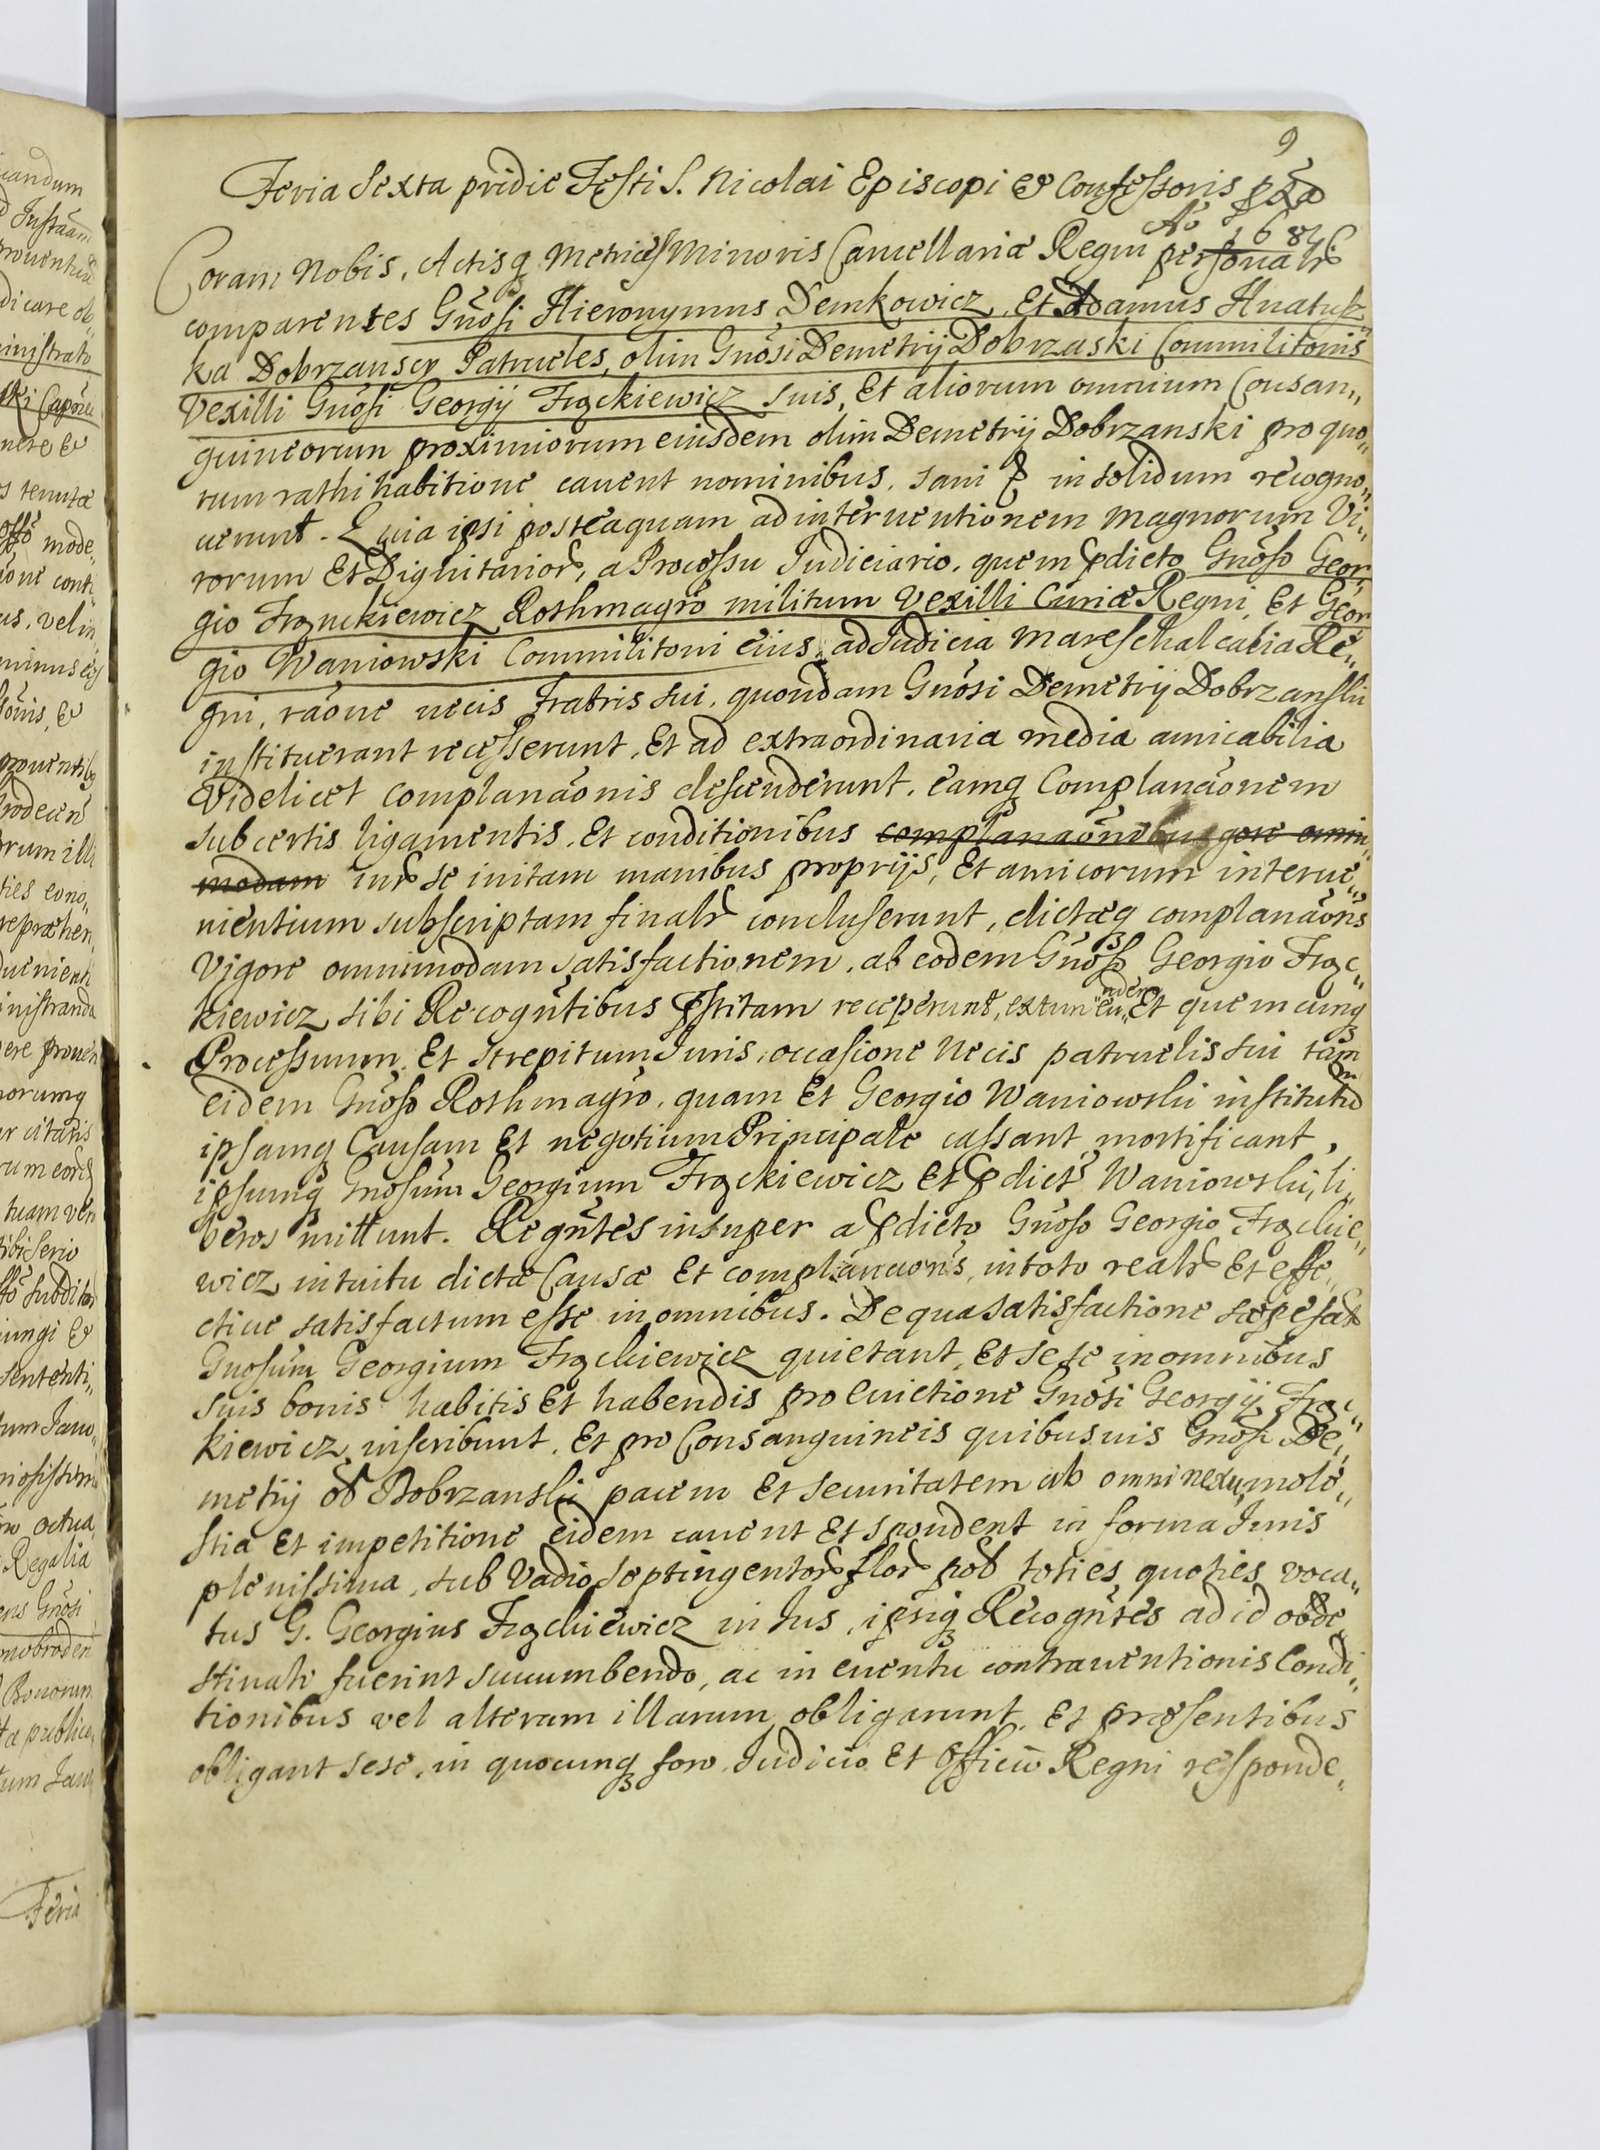 9
Feria Sexta pridie Festi S. Nicolai Episcopi et Confessoris
Ao 168
Coram Nobis, Actisq Metrices Minoris Cancellariæ Regni personalr
comparentes Gnosi Hieronymus Demkowicz, Et Adamus Hnatusz
ka Dobrzanscy Patrueles, olim Gnosi Demetrij Dobrzaski Commilitonis
Vexilli Gnosi Georgij Frąckiewicz suis, Et aliorum omnium Consan„
guineorum proximiorum eiusdem olim Demetrij Dobrzanski pro quo„
rum rathi habitione cauent nominibus, sani in solidum recogno„
uerunt. Quia ipsi posteaquam ad interuentionem Magnorum Vi„
rorum Et Dignitarior, a Processu Judiciario, quem pdicto Gnoso Geor„
gio Frąnckiewicz Rothmagro militum Vexilli Curiæ Regni, Et Geor
gio Waniowski Commilitoni eius, ad Judicia Mareschalcalia Re„
gni, raone necis Fratris sui, quondam Gnosi Demetrij Dobrzanski
instituerant recesserunt, Et ad extraordinaria media amicabilia
Videlicet complanaonis descenderunt, eamq Complanaonem
sub certis ligamentis, Et conditionibus complanaonibus gore omni„
modam intr se initam manibus proprijs, Et amicorum interue„
nientium subscriptam finalr concluserunt, dictæq complanaonis
Vigore omnimodam satisfactionem, ab eodem Gnoso Georgio Frąc„
kiewicz sibi Recogntibus pstitam receperunt, extun Et quemcunq
Processuum, Et strepitum Juris, occasione Necis patruelis sui tam
eidem Gnoso Rothmagro, quam Et Georgio Waniowski institutum
ipsamq Causam Et negotium Principale cassant, mortificant,
ipsumq Gnosum Georgium Frąckiewicz Et pdict Waniowski, li„
beros mittunt. Regntes insuper a pdicto Gnoso Georgio Frąckie„
wicz, intuitu dictæ Causæ Et complanaonis, in toto realr Et effe„
ctiue satisfactum esse in omnibus. De qua satisfactione sæpefat
Gnosum Georgium Frąckiewicz quietant, Et sese in omnibus
suis bonis habitis Et habendis pro euictione Gnosi Georgij Frąc„
kiewicz, inscribunt, Et pro Consanguineis quibusuis Gnosi De„
metrij Dobrzanski pacem Et securitatem ab omni nexu, mole„
stia Et impetitione eidem cauent Et spondent in forma Juris
plenissima, sub Vadio Septingentor flor pol toties, quoties, voca„
tus G. Georgius Frąckiewicz in Jus, ipsiq Recogntes ad id
stinati fuerint succumbendo, ac in euentu contrauentionis Condi„
tionibus vel alteram illarum, obligarunt, Et præsentibus
obligant sese, in quocunq foro Judicio Et Officio Regni responde„
Feria